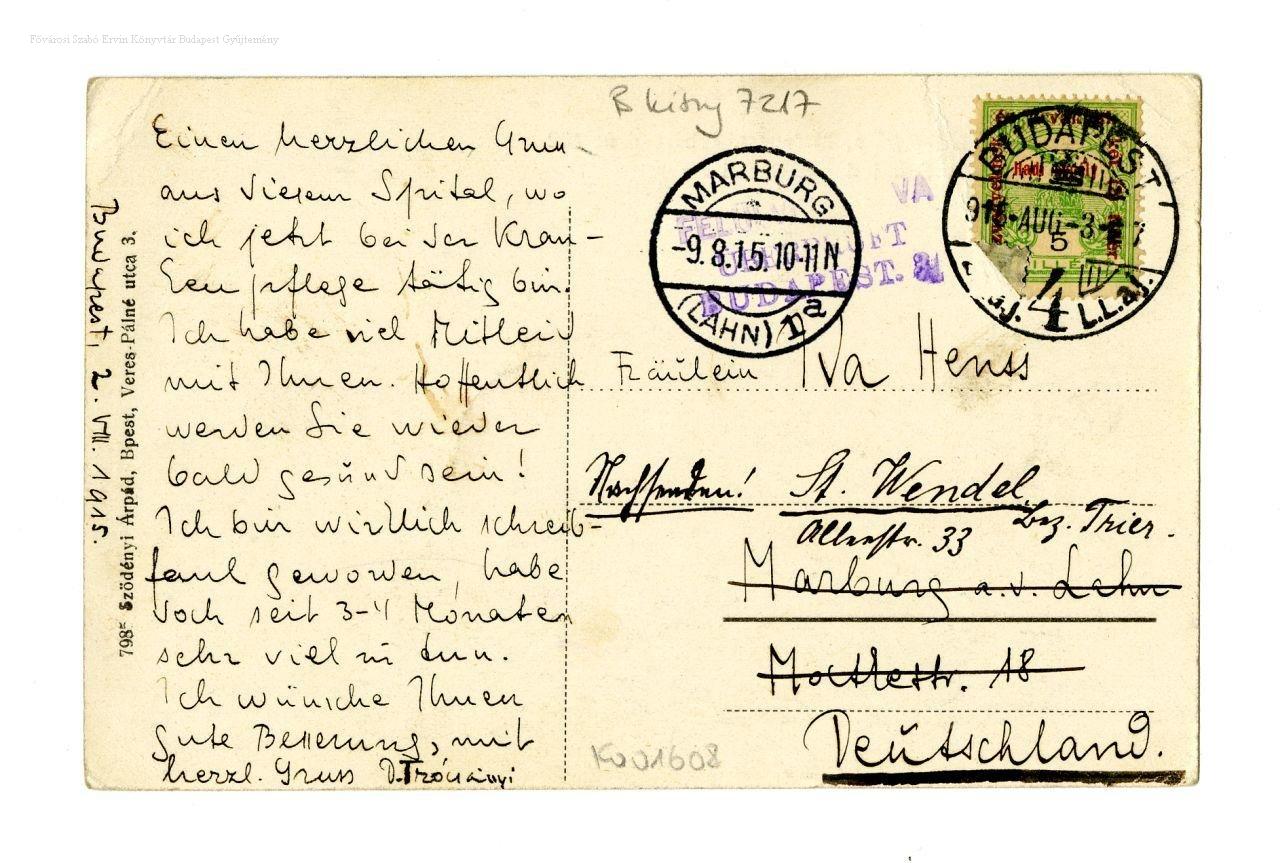 Fővárosi Szabó Ervin Könyvtár Budapest Gyűjtemény
B kisny 7217
Einen herzlichen Gruss
aus diesem Spital, wo
ich jetzt bei der Kran-
kenpflege tätig bin.
Ich habe viel Mitleid
mit Ihnen. Hoffentlich
werden Sie wieder
bald gesund sein!
Ich bin wirklich schreib-
faul geworden, habe
doch seit 3-4 Monaten
sehr viel zu tun.
Ich wünsche Ihnen
gute Besserung, mit
herzl. Gruss
Budapest, 2. VIII. 1915.
798= Sződényi Árpád, Bpest, Veres-Pálné utca 3.
MARBURG
-9.8.15.10-11N
(LAHN) 1a
BUDAPEST.
BUDAPEST
915-AUG-3
4
Hadi
5
FILLÉR
Fräulein Iva Henss
Nachsenden! St. Wendel
Bez. Trier.
Allerstr. 33
Marburg a. d. Lahn
18
Deutschland.
Ko 01608